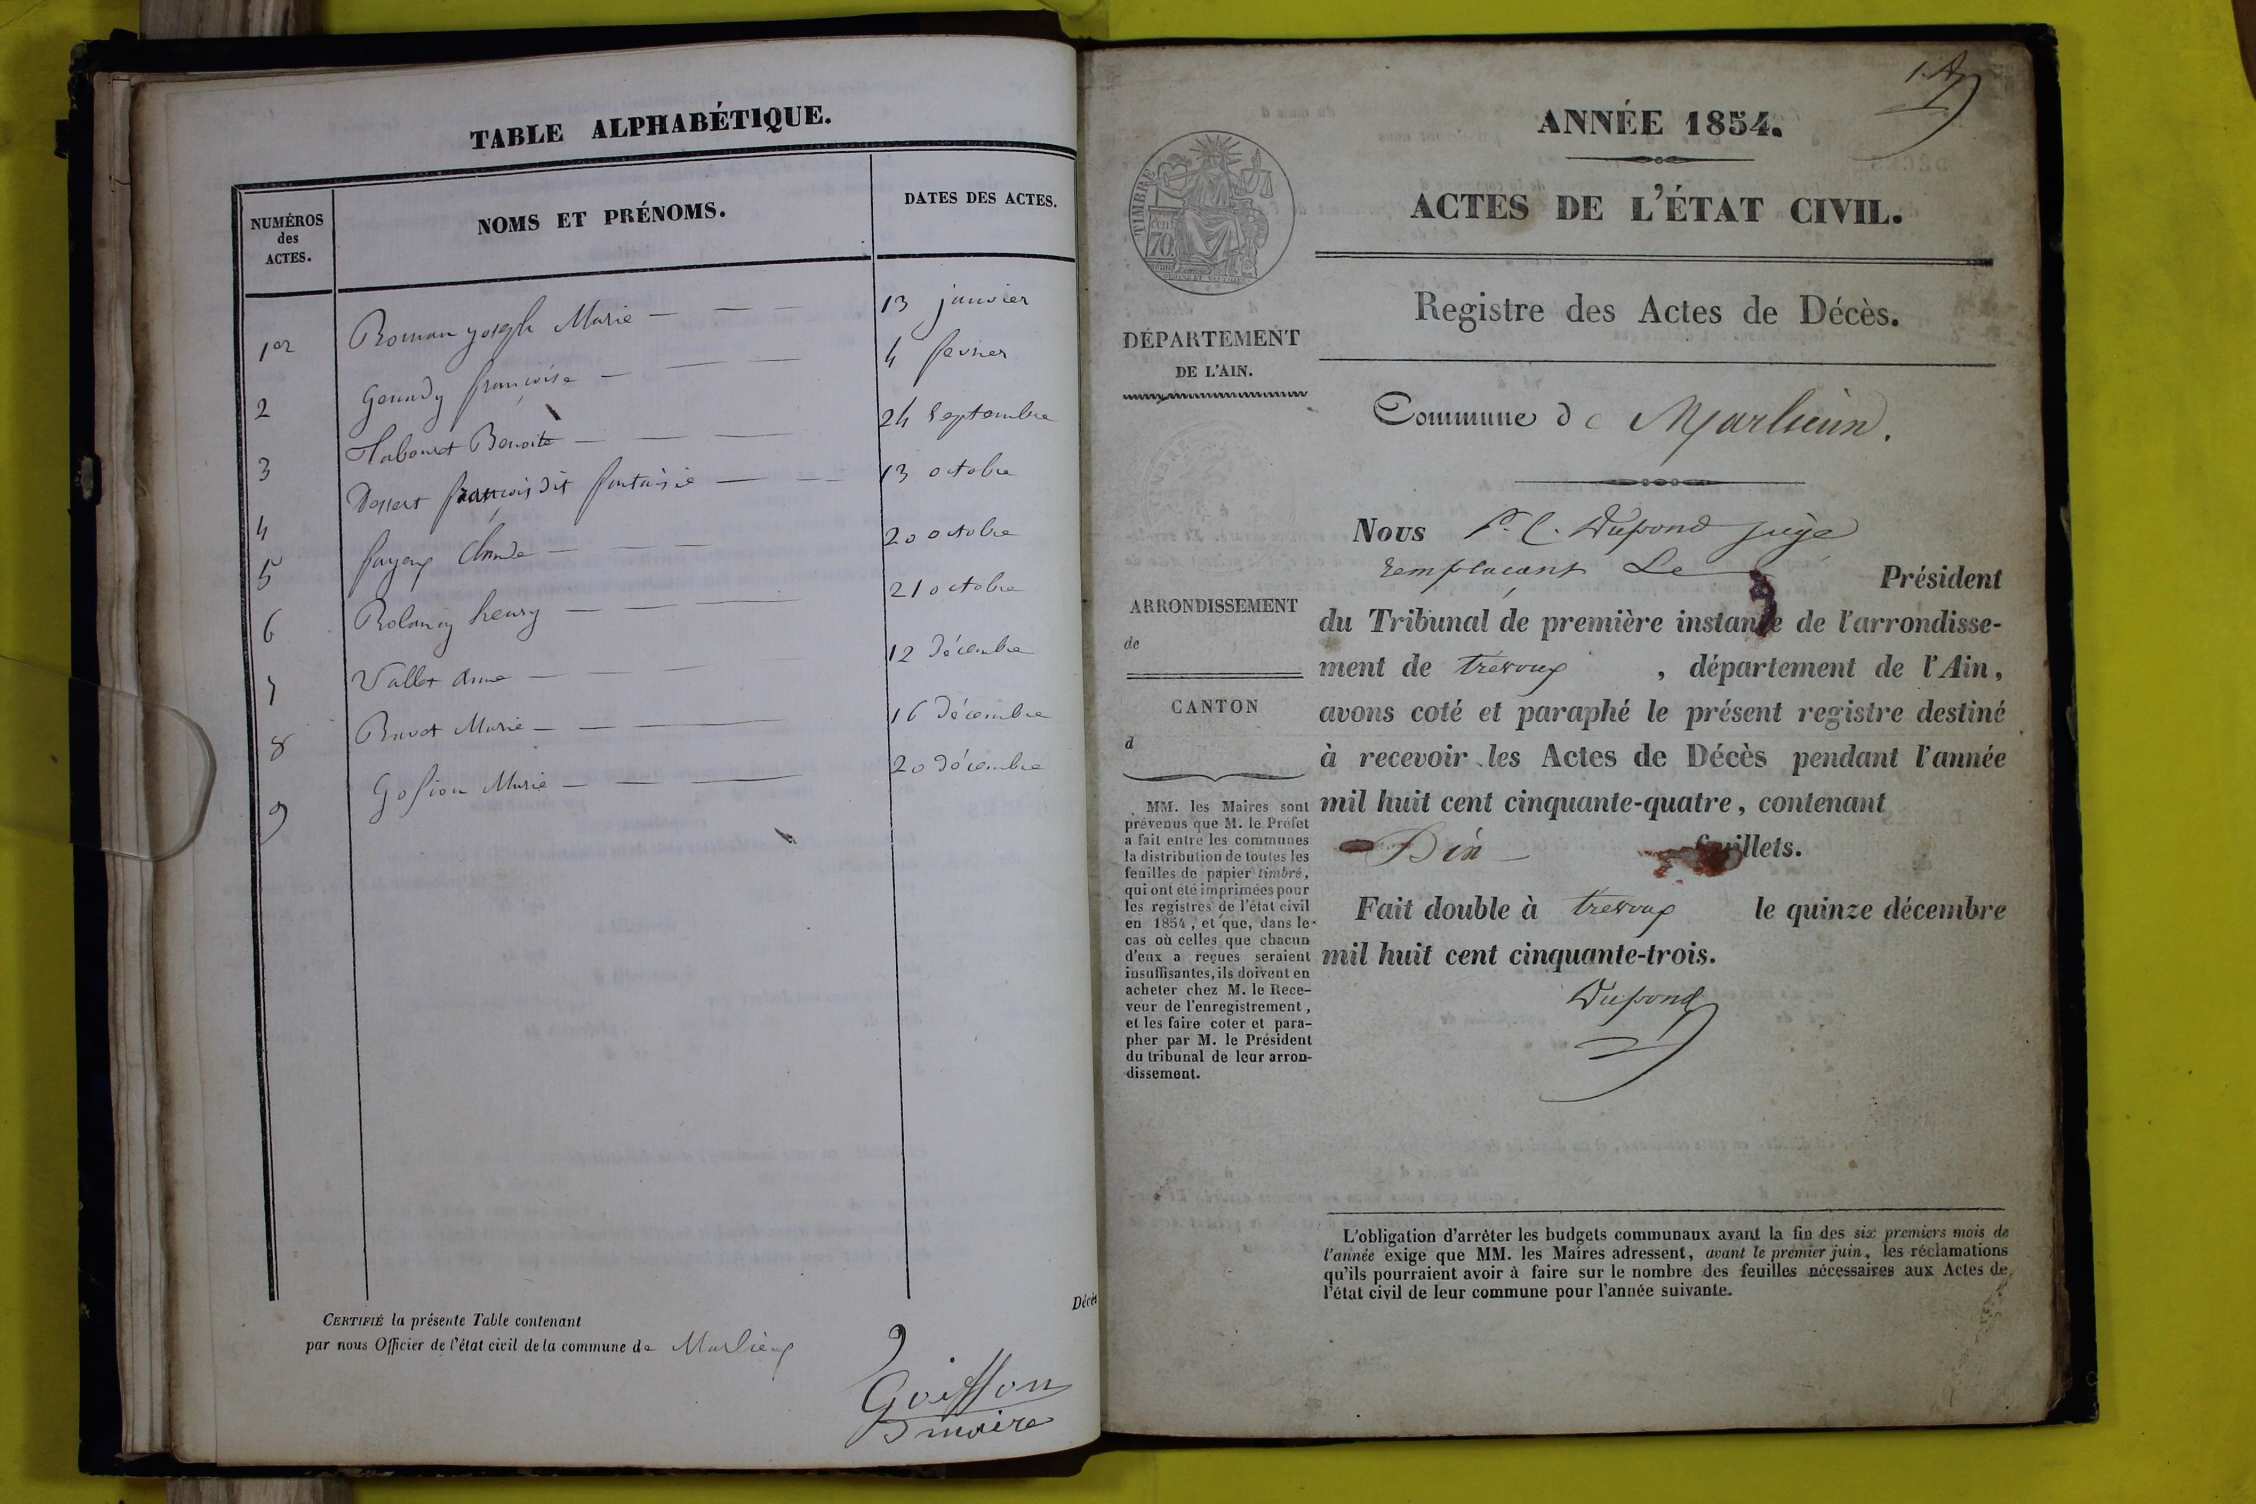 TABLE ALPHABÉTIQUE.
NUMÉROS
des
ACTES.
NOMS ET PRÉNOMS.
DATES DES ACTES.
1er Roman joseph Marie — — — 13 janvier
2 françoise — — — 4 fevrier
3 Benoite — — — 24 Septembre
4 françois dit fantaisie — — — 13 octobre
5 Claude — — — 20 octobre
6 henry — — — 21 octobre
7 Vallet Anne — — — 12 décembre
8 Buvet Marie — — — 16 décembre
9 Marie — — — 20 décembre
Décès
CERTIFIÉ la présente Table contenant 9
par nous Officier de l'état civil de la commune de Marlieux
Goiffon
maire
ANNÉE 1854.
ACTES DE L'ÉTAT CIVIL.
Registre des Actes de Décès.
TIMBRE
70
DÉPARTEMENT
DE L'AIN.
Commune de
Nous P. C. Dupond juge
remplaçant Le Président
du Tribunal de première instance de l'arrondisse-
ment de trévoux, département de l'Ain,
avons coté et paraphé le présent registre destiné
à recevoir les Actes de Décès pendant l'année
mil huit cent cinquante-quatre, contenant
Dix feuillets.
Fait double à trevoux le quinze décembre
mil huit cent cinquante-trois.
Dupond
ARRONDISSEMENT
de
CANTON
d
MM. les Maires sont
prévenus que M. le Préfet
a fait entre les communes
la distribution de toutes les
feuilles de papier timbré,
qui ont été imprimées pour
les registres de l'état civil
en 1854, et que, dans le
cas où celles que chacun
d'eux a reçues seraient
insuffisantes, ils doivent en
acheter chez M. le Rece-
veur de l'enregistrement,
et les faire coter et para-
pher par M. le Président
du tribunal de leur arron-
dissement.
L'obligation d'arrêter les budgets communaux avant la fin des six premiers mois de
l'année exige que MM. les Maires adressent, avant le premier juin, les réclamations
qu'ils pourraient avoir à faire sur le nombre des feuilles nécessaires aux Actes de
l'état civil de leur commune pour l'année suivante.